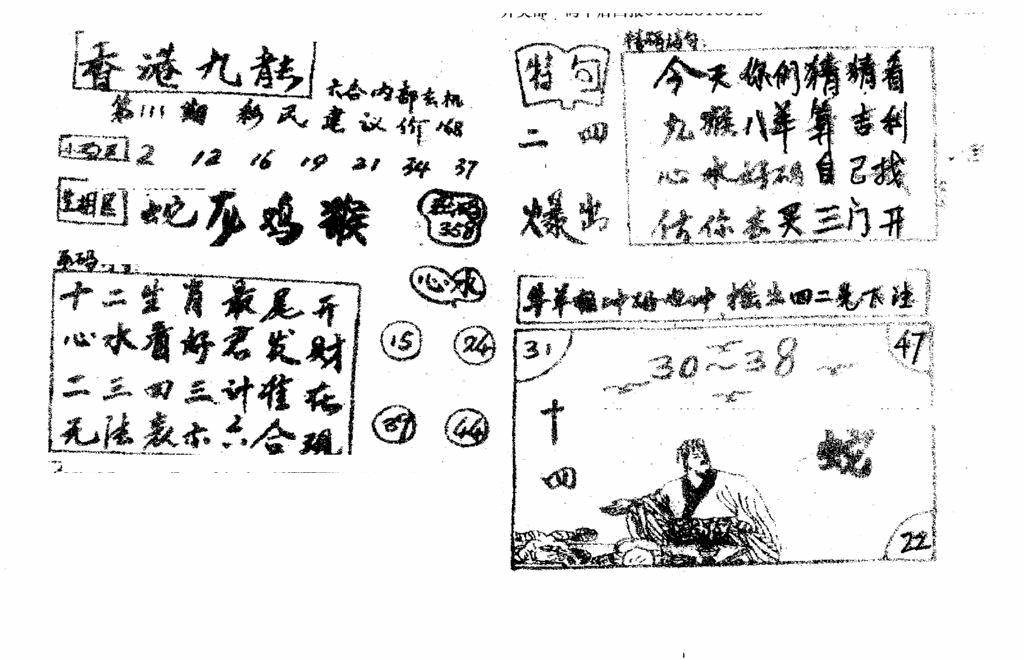 香港九龙
六合内部玄机
第111期 彩民建议价168
2 12 16 19 21 34 37
生肖区
蛇龙鸡猴
358
心水
十二生肖最尾开
心水看好君发财
二三四三计准在
无法表示六合现
15 24
39 44
特句
二四
爆出
今天你们猜猜看
九猴八羊算吉利
心水好码自己找
估你去买三门开
31
30～38
47
十四
蛇
22